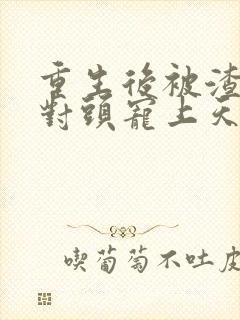 重生後被渣
對頭寵上天
喫葡萄不吐皮